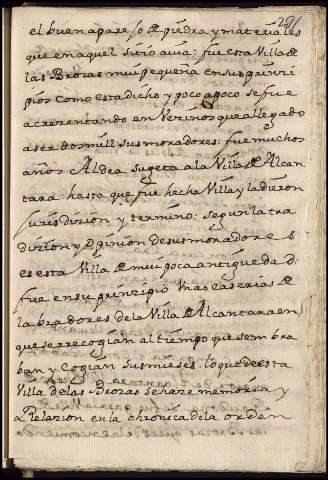 291
el buen aparejo de piedra y materiales
que en aquel sitio auia: fue esta Villa de
las Brozas mui pequeña en sus prinzi
pios como esta dicho y poco a poco se fue
acrezentando en Vezinos que a llegado
a ser dos mill sus moradores: fue muchos
años Aldea sugeta a la Villa de Alcan
tara hasta que fue hecha Villa y la dieron
jurisdizion y termino: segun la tra
dizion y opinion de sus moradores
es esta Villa de mui poca antiguedad:
fue en su prinzipio Unas caserias de
labradores de la Villa de Alcantara en
que se rrecogian al tiempo que sembra
ban y cogian sus mieses. lo que de esta
Villa de las Brozas se haze memoria y
Relazion en la chronica de la orden